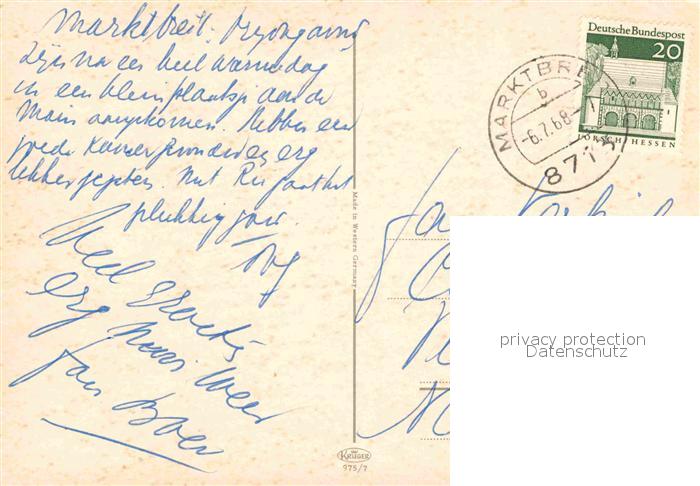 Marktbreit.
zijn na een heel warme dag
in een klein plaatsje aan de
Main aangekomen. Hebben een
goede kamer gevonden en erg
lekker gegeten. Met Ria gaat het
gelukkig goed.
Veel groeten
erg mooi weer
Jan Boer
Made in Western Germany
KRÜGER
975/7
Deutsche Bundespost
20
LORSCH/HESSEN
MARKTBREIT
b
-6.7.68-
8713
privacy protection
Datenschutz